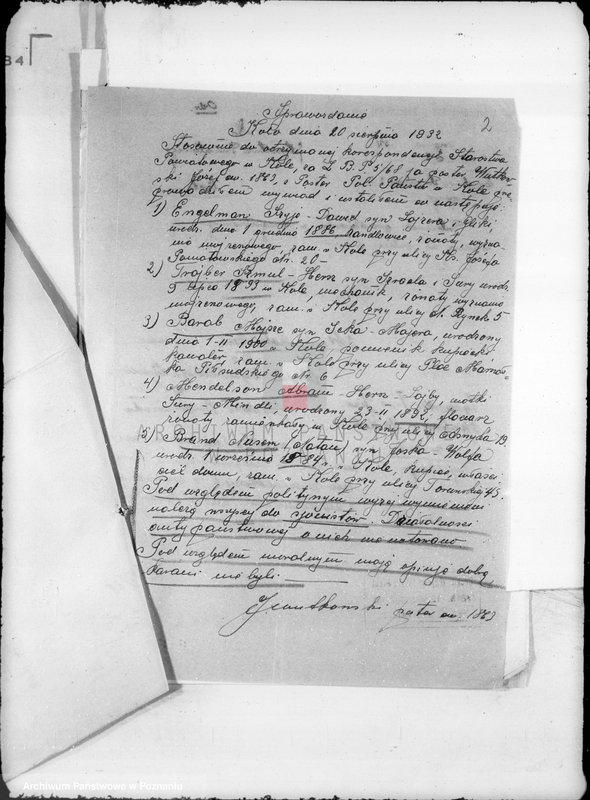 2
Sprawozdanie
Koło dnia 20 sierpnia 1932
Stosownie do otrzymanej korespondencji Starostwa
Powiatowego w Kole, za L. B.P. 5/68 ja poster.
ski Józef nr. 1863, z Poster. Pol. Państw. w Kole prze-
prowadziłem wywiad i ustaliłem co następuje:
1) Engelman Szyja-Dawid syn Lajzera i
urodz. dnia 1 grudnia 1886, handlowiec, żonaty, wyzna-
nia mojżeszowego, zam. w Kole przy ulicy Ks. Józefa
Poniatowskiego Nr. 20-
2) Trajber Szmul-Hersz syn Izraela i Sury urodz.
5 lipca 1893 w Kole, mechanik, żonaty wyznania
mojżeszowego, zam. w Kole przy ulicy St. Rynek 5
3) Barab Mojsze syn Icka-Majera, urodzony
dnia 1-11 1900 w Kole pomocnik kupiecki
kawaler, zam. w Kole przy ulicy Plac Marszał-
ka Piłsudskiego Nr. 6
4) Mendelson Abram-Hersz-Lajby, matki
Sury-Mindli, urodzony 23-11 1893,
żonaty zamieszkały w Kole przy ulicy Asnyka 19
5) Brand Nasem (Natan) syn Joska-Wolfa
urodz. 1 września 1884 r. w Kole, kupiec, właści-
ciel domu, zam. w Kole przy ulicy Toruńskiej 45.
Pod względem politycznym wyżej wymienieni
należą wszyscy do sjonistów. Działalności
anty państwowej o nich nie notowano
Pod względem moralnym mają opinję dobrą
Karani nie byli.
post. nr. 1863
ARCHIWUM PAŃSTWOWE
W POZNANIU
Archiwum Państwowe w Poznaniu